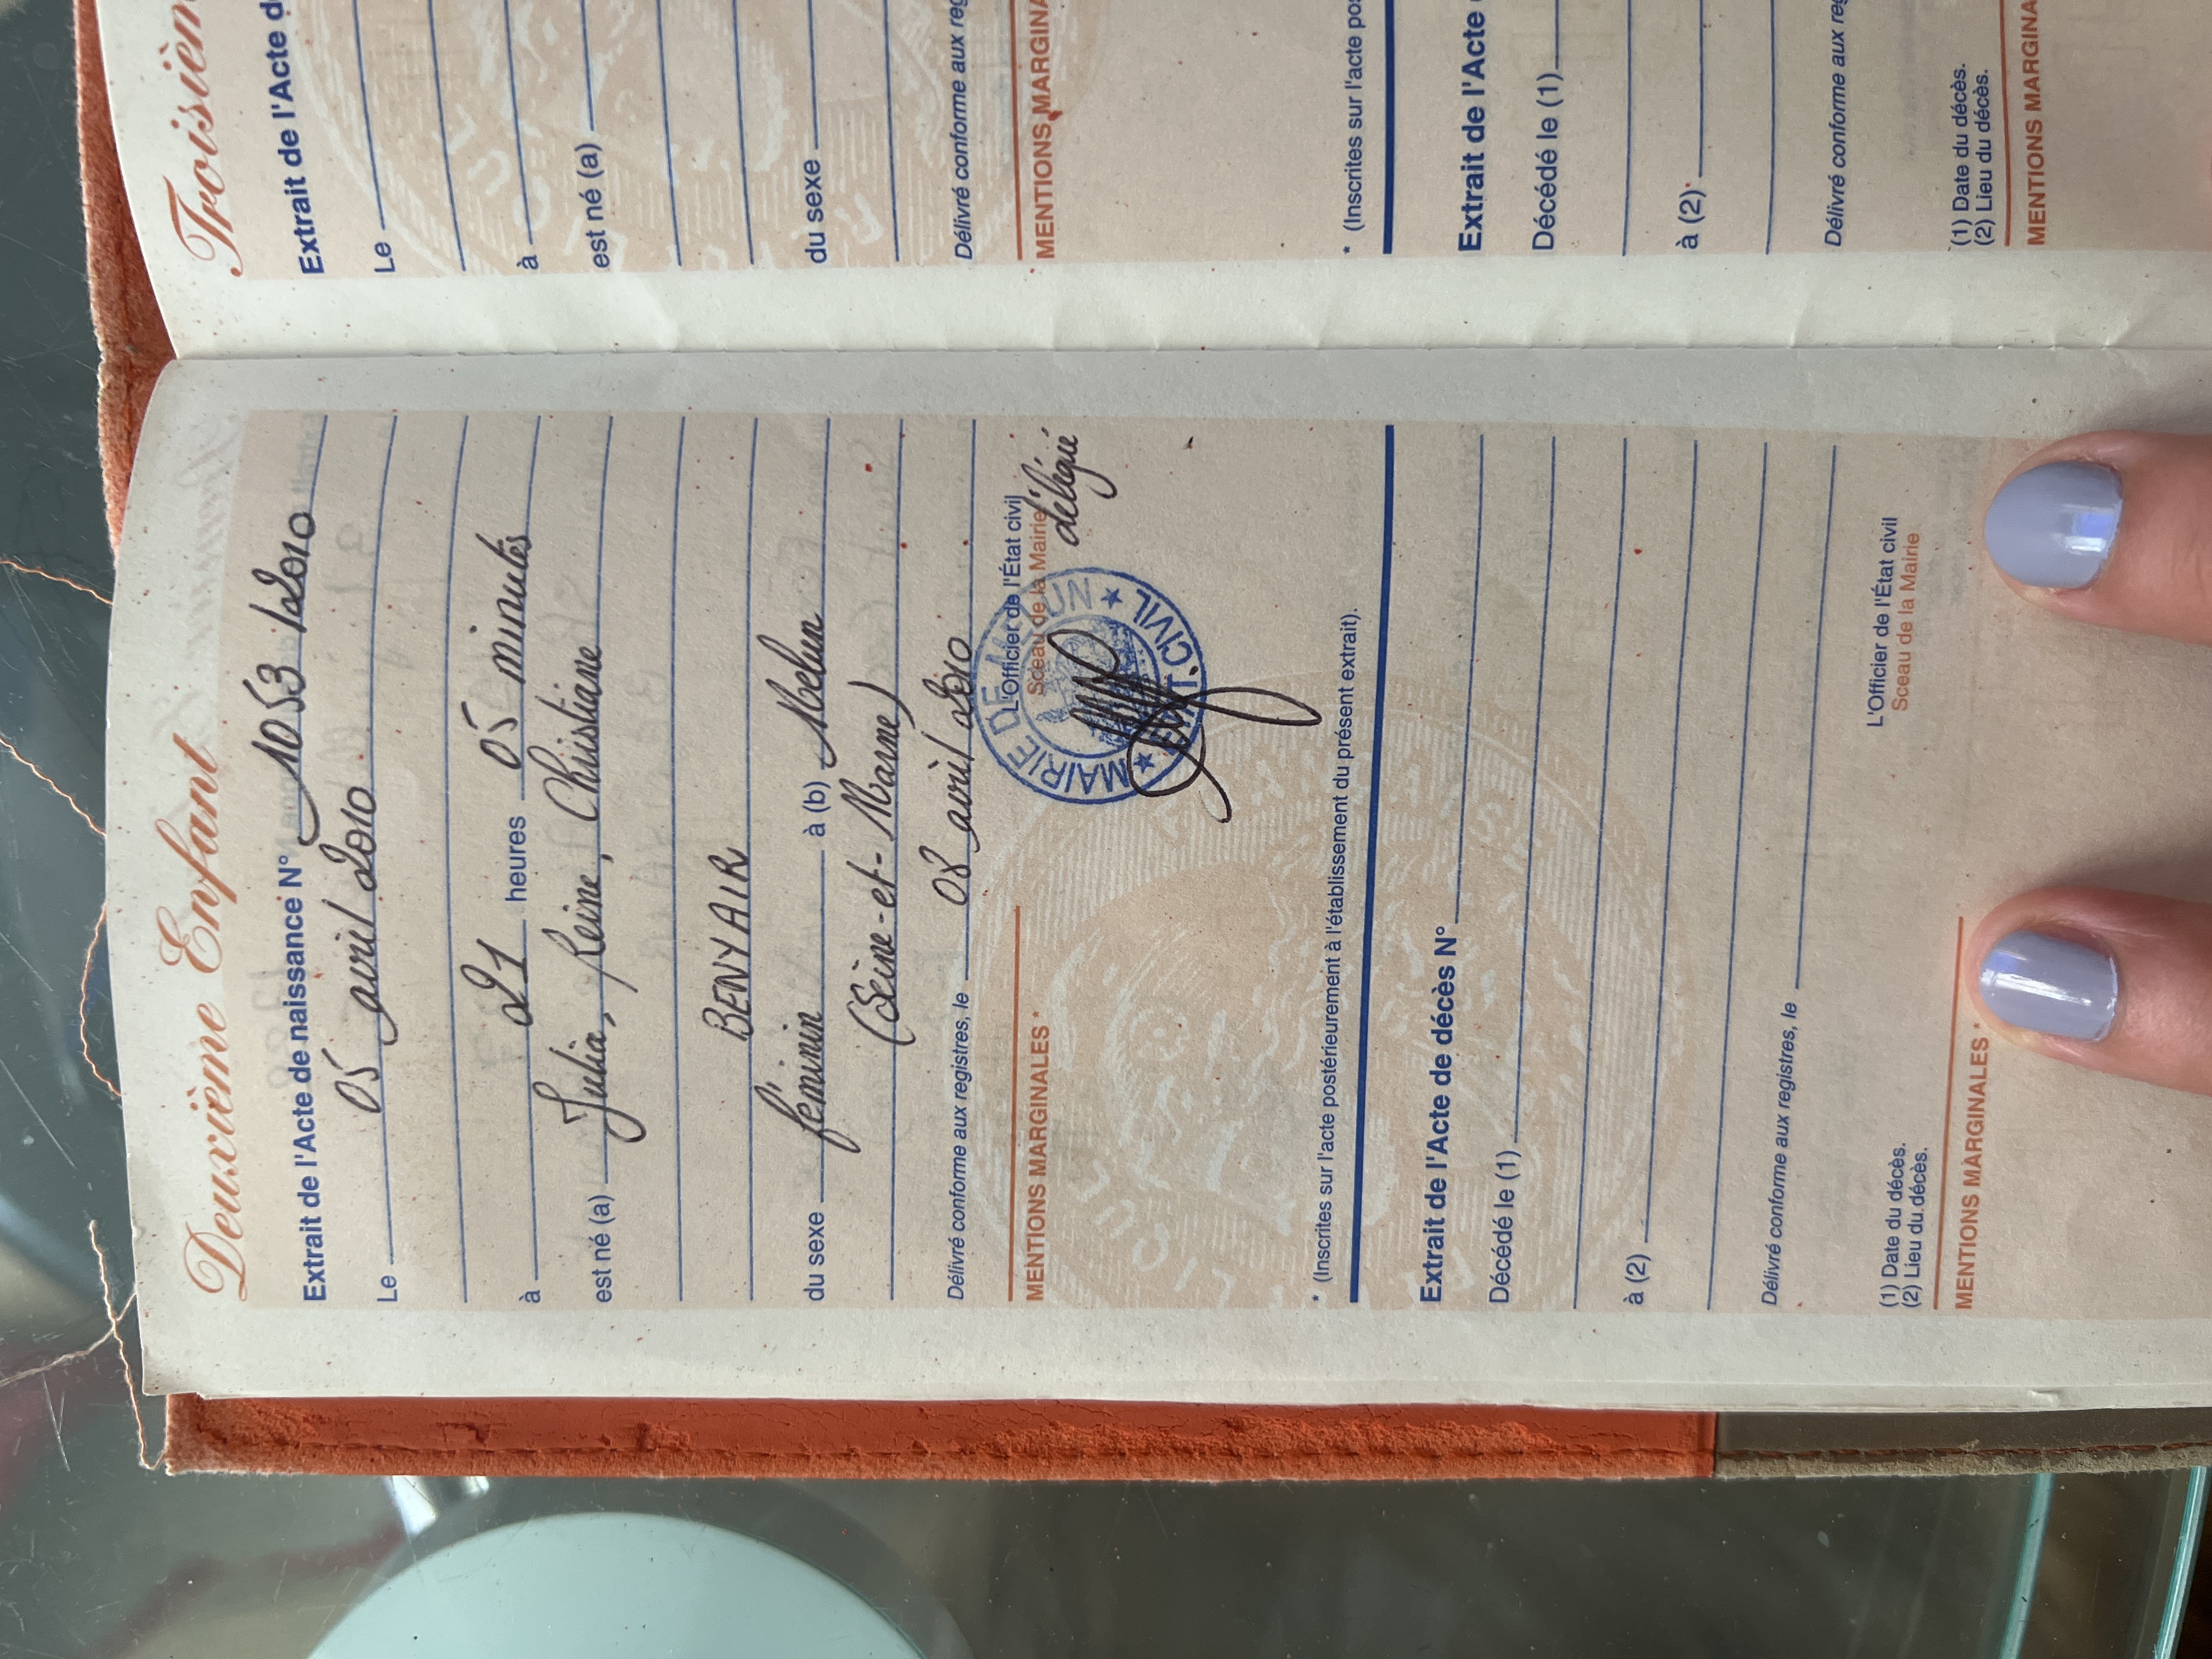 Deuxième Enfant
Extrait de l'Acte de naissance N° 1053 / 2010
Le 05 avril 2010
à 21 heures 05 minutes
est né (a) Julia, Reine, Christiane
BENYAIR
du sexe féminin à (b) Melun
(Seine-et-Marne)
Délivré conforme aux registres, le 08 avril 2010
L'Officier de l'État civil
Sceau de la Mairie
délégué
MAIRIE DE MELUN
★ ÉTAT. CIVIL ★
MENTIONS MARGINALES *
* (Inscrites sur l'acte postérieurement à l'établissement du présent extrait).
Extrait de l'Acte de décès N°
Décédé le (1)
à (2)
Délivré conforme aux registres, le
L'Officier de l'État civil
Sceau de la Mairie
(1) Date du décès.
(2) Lieu du décès.
MENTIONS MARGINALES *
Troisièm
Extrait de l'Acte d
Le
à
est né (a)
du sexe
Délivré conforme aux reg
MENTIONS MARGINA
* (Inscrites sur l'acte pos
Extrait de l'Acte
Décédé le (1)
à (2)
Délivré conforme aux reg
(1) Date du décès.
(2) Lieu du décès.
MENTIONS MARGINA